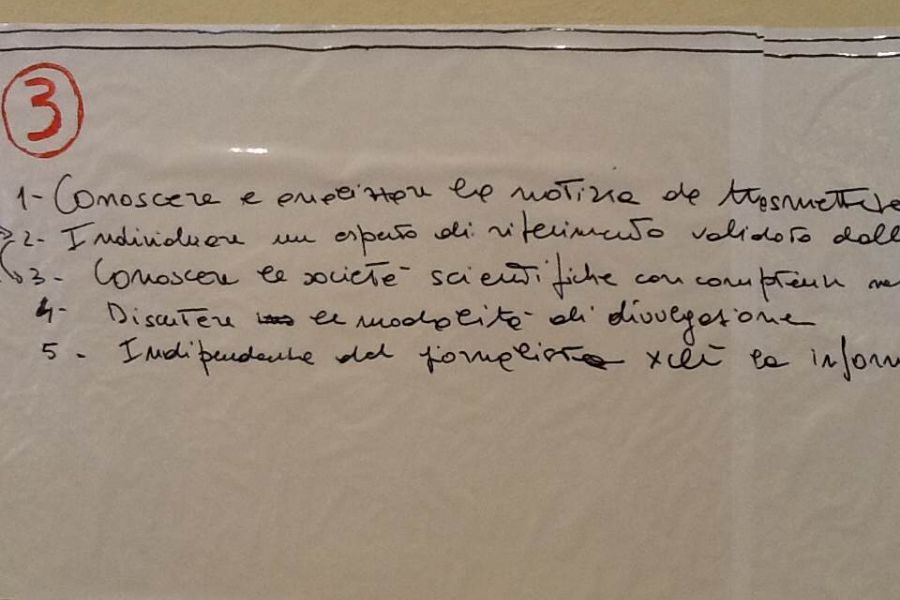 3
1- Conoscere e analizzare la notizia da trasmettere
2- Individuare un esperto di riferimento validato dall
3- Conoscere le società scientifiche con competenze
4- Discutere le modalità di divulgazione
5- Indipendenza del giornalista xché la inform